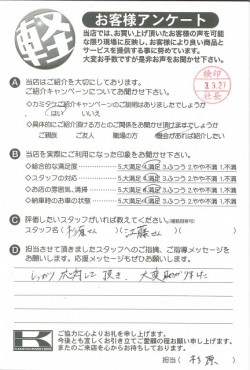 軽
お客様アンケート
当店では、お買い上げ頂いたお客様の声を可能
な限り現場に反映し、お客様により良い商品と
サービスを提供する事に努めています。
大変お手数ですが是非お声をお聞かせ下さい。
検印
社長
A 当店はご紹介を大切にしております。
ご紹介キャンペーンについてお聞かせ下さい。
◇カミタニご紹介キャンペーンのご説明はありましたでしょうか
はい いいえ
◇具体的にご紹介頂ける方とのご関係をお聞かせ頂けますでしょうか
ご親族 ご友人 職場の方 機会があれば紹介したい
B 当店を実際にご利用になった印象をお聞かせ下さい。
◇総合的な満足度 5.大満足 4.満足 3.ふつう 2.やや不満 1.不満
◇スタッフの対応 5.大満足 4.満足 3.ふつう 2.やや不満 1.不満
◇お店の雰囲気、清掃 5.大満足 4.満足 3.ふつう 2.やや不満 1.不満
◇納車時のお車の状態 5.大満足 4.満足 3.ふつう 2.やや不満 1.不満
C 評価したいスタッフがいれば教えてください。(複数回答可)
スタッフ名( 杉原さん )( 江藤さん )
D 担当させて頂きましたスタッフへのご指摘、ご指導メッセージを
お願いします。応援メッセージもぜひお願いします。
しっかり 対応して 頂き、大変助かりました
K
ご協力に心よりお礼を申し上げます。
今後とも宜しくお引き立てご愛顧の程お願い申し上げます。
またのご来店を心からお待ちしております。
担当( 杉原 )